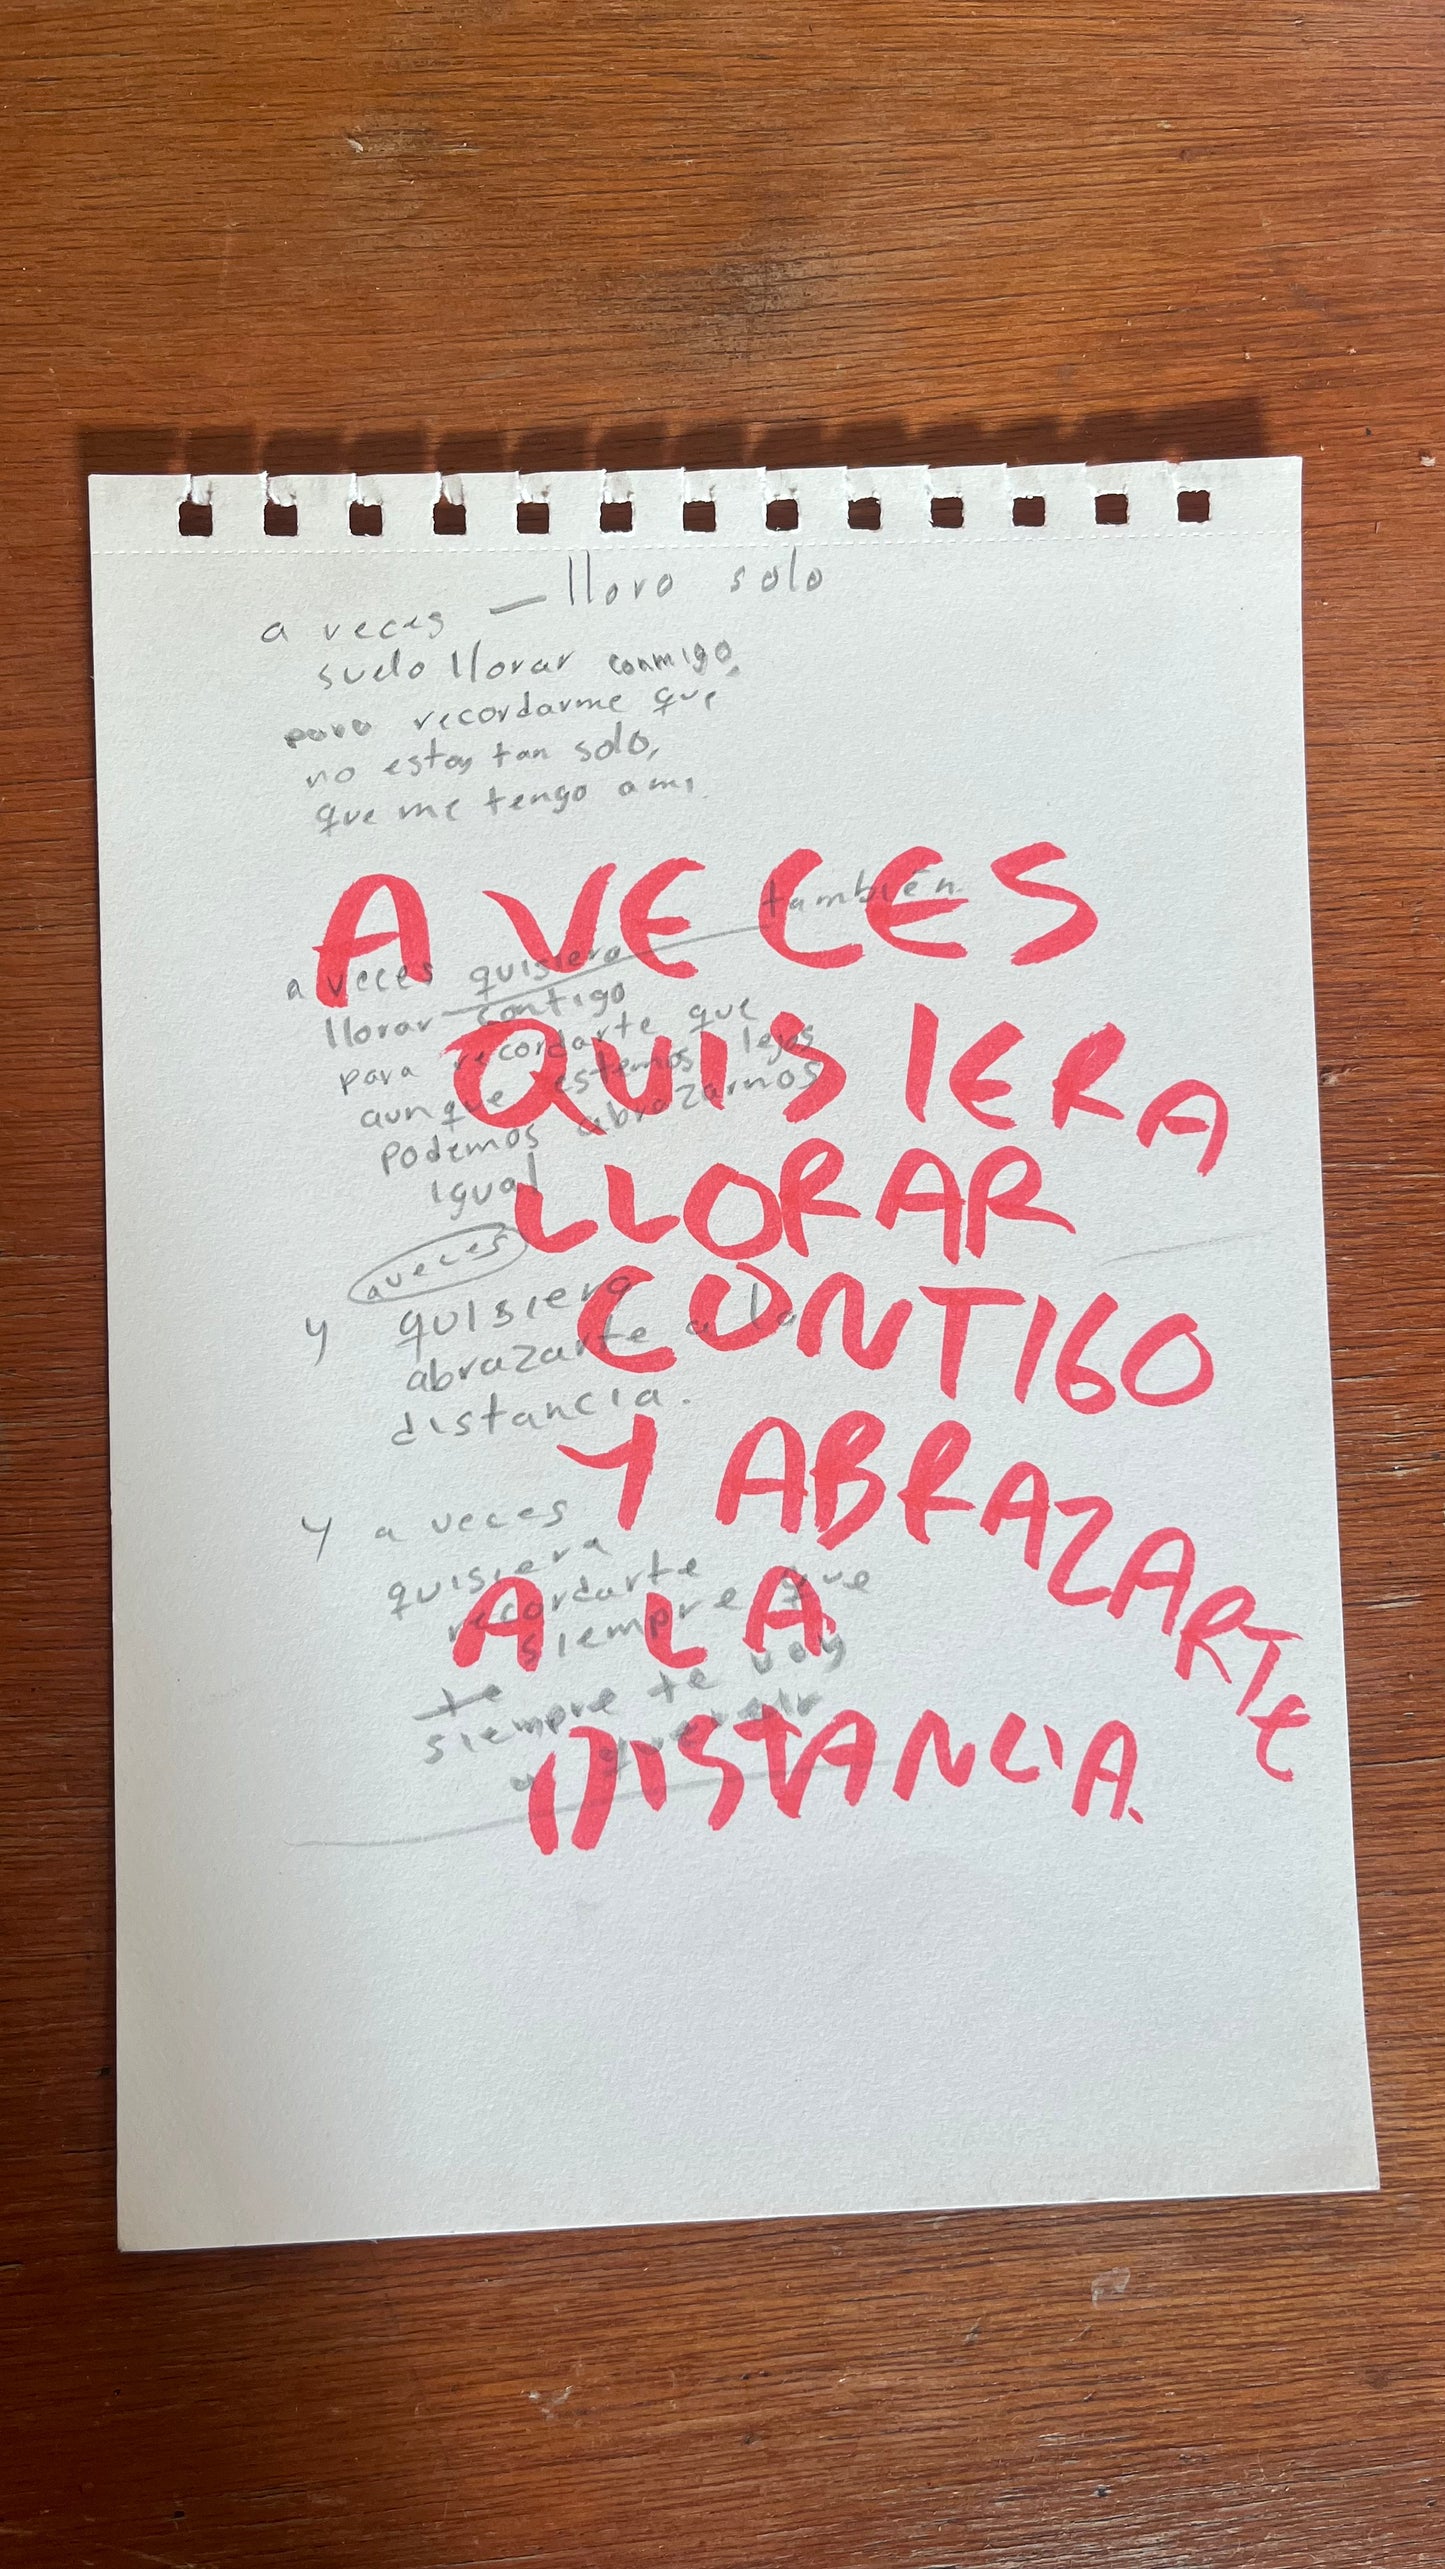 a veces — lloro solo
suelo llorar conmigo.
para recordarme que
no estoy tan solo,
que me tengo a mi.
A VECES
QUISIERA
LLORAR
CONTIGO
Y ABRAZARTE
A LA
DISTANCIA.
a veces quisiera también
llorar contigo
para recordarte que
aunque estemos lejos
podemos abrazarnos
igual
a veces
y quisiera
abrazarte a la
distancia.
Y a veces
quisiera
recordarte
siempre que
te
siempre te voy
a querer